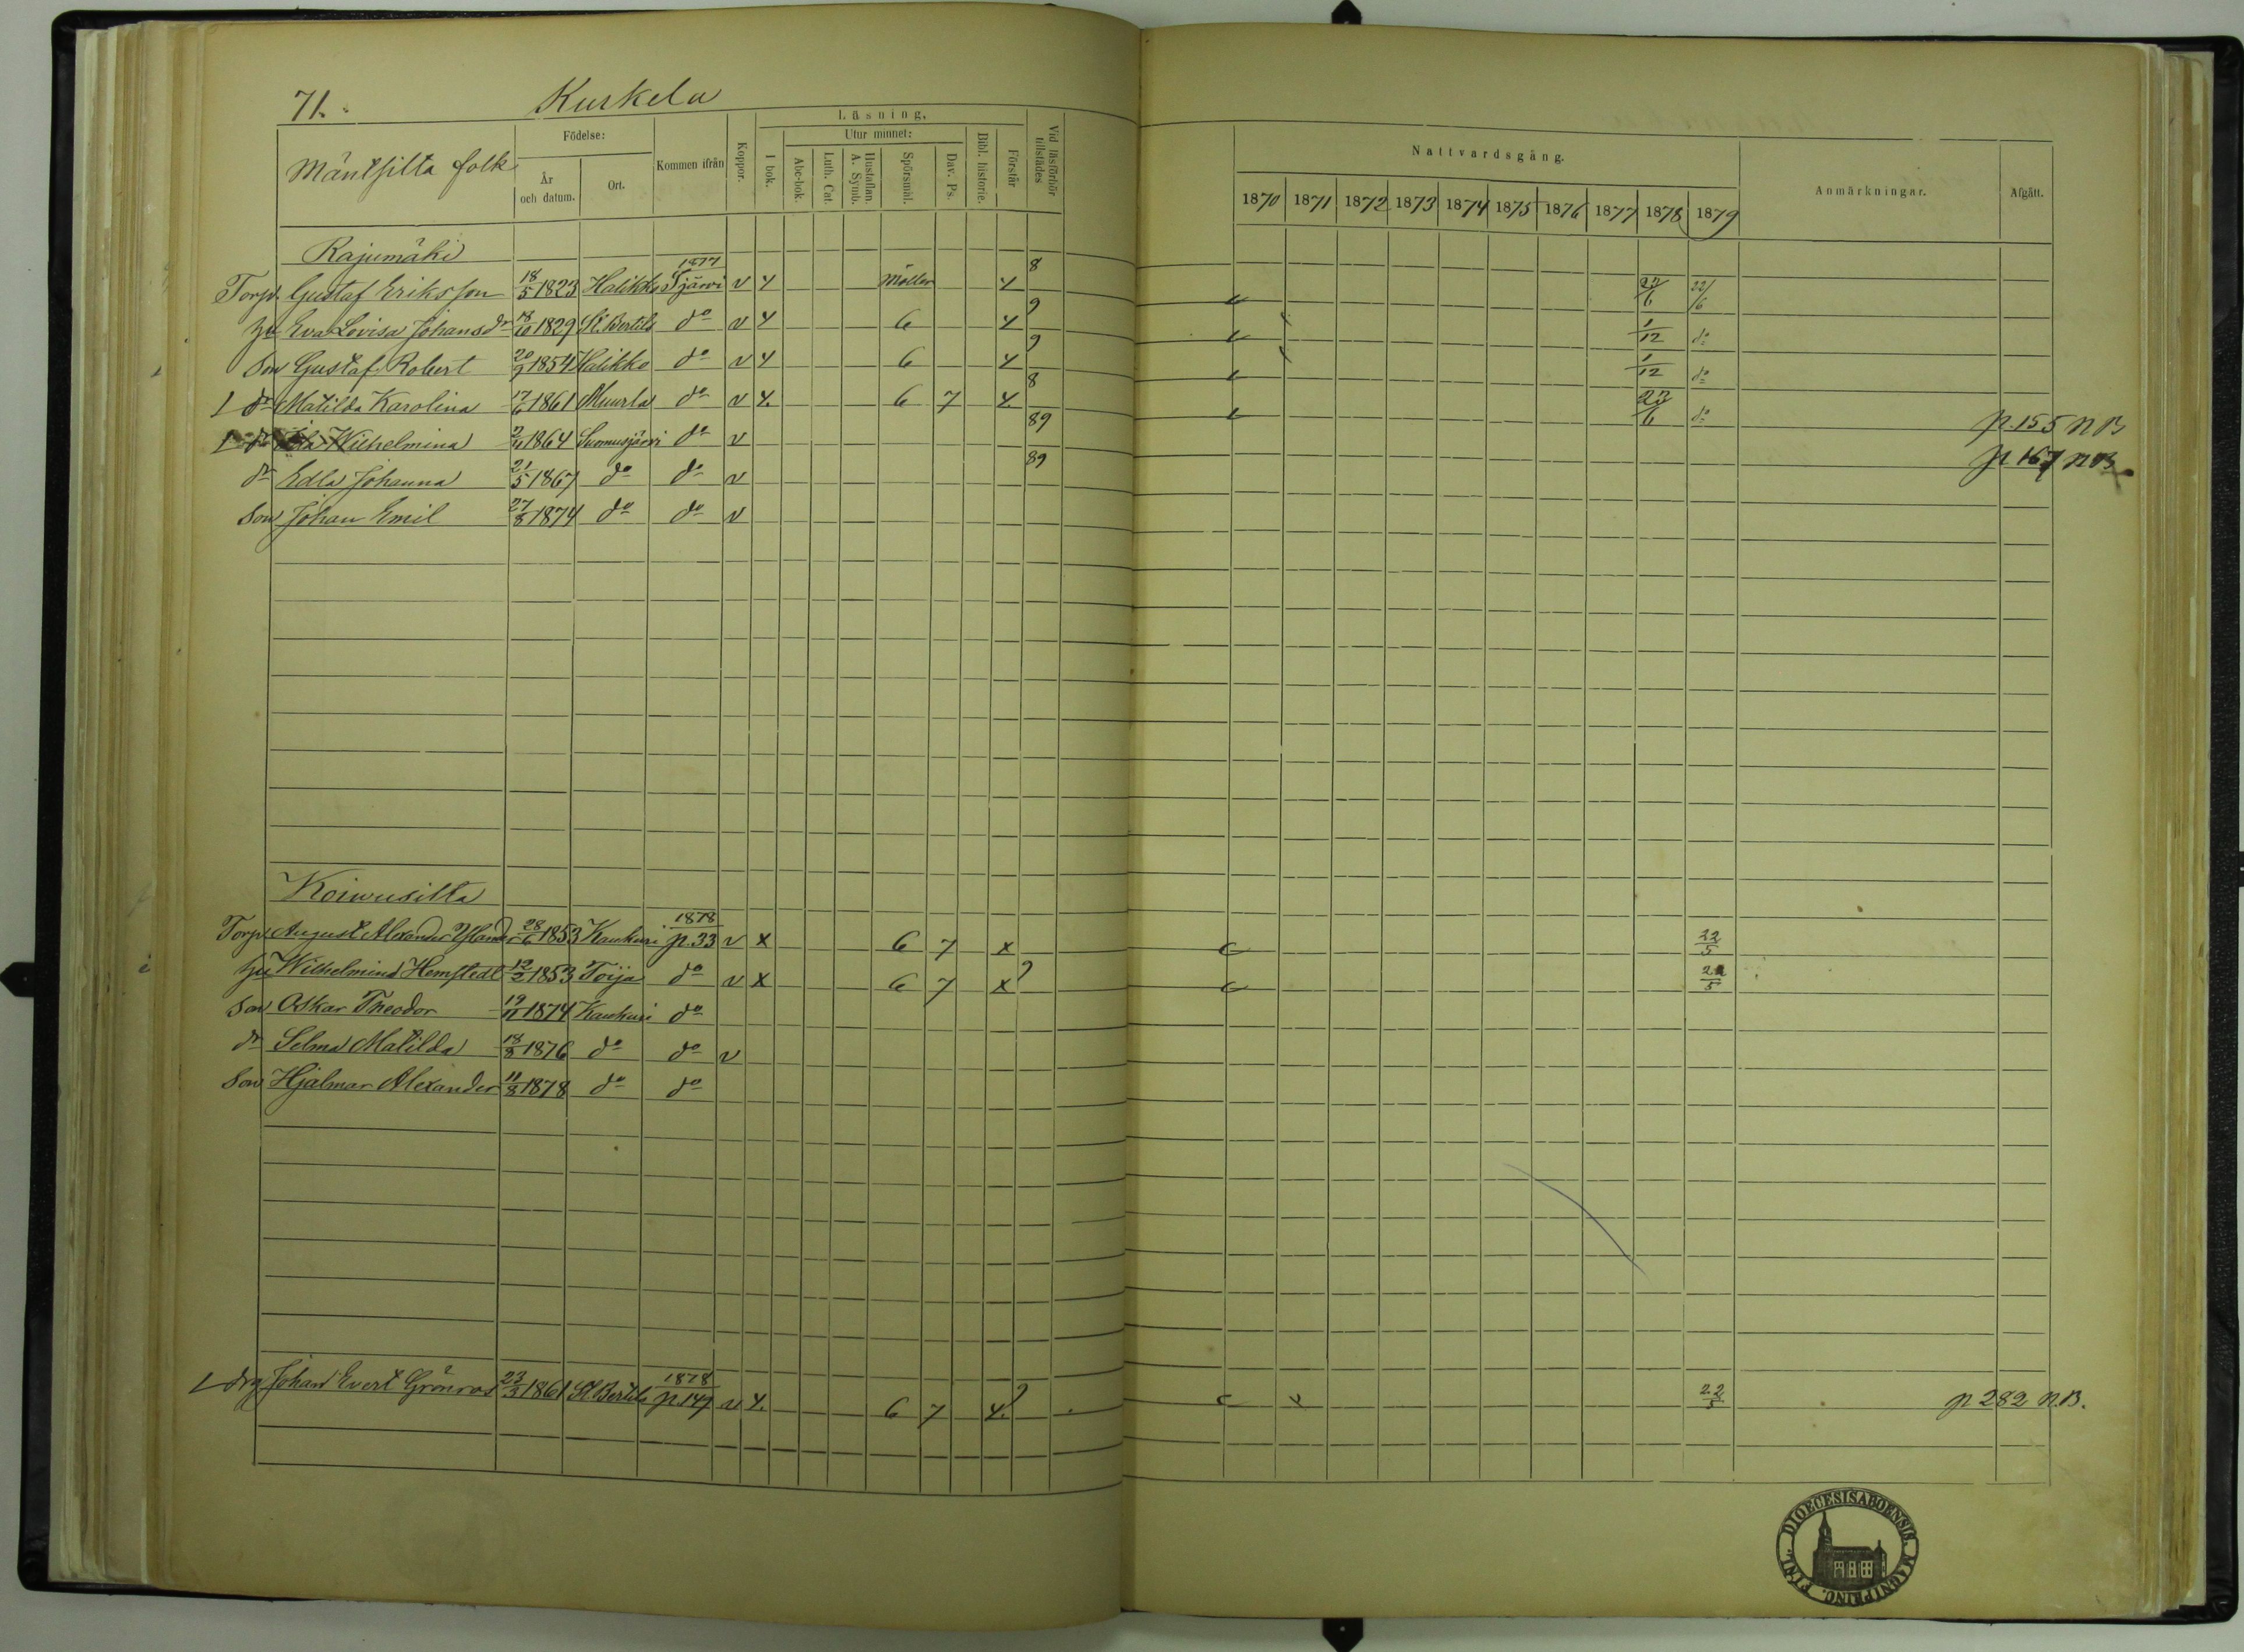 71. Kurkela
Mäntsilta folk
Födelse:
År och datum.
Ort.
Kommen ifrån
Koppor.
Läsning.
I bok.
Utur minnet:
Abc-bok.
Luth. Cat.
Hustaflan. A. Symb.
Spörsmål.
Dav. Ps.
Bibl. historie.
Förstår
Vid läsförhör tillstädes
Nattvardsgång.
1870 1871 1872 1873 1874 1875 1876 1877 1878 1879
Anmärkningar.
Afgått.
Rajumäki
1877
Torp. Gustaf Eriksson 18/5 1823 Halikko Sjärvi v 4 Möller 4 8 22/6 22/6
hu Eva Lovisa Johansdr 18/10 1829 St. Bertils do v 4 6 4 9 1/12 do
Son Gustaf Robert 20/9 1854 Halikko do v 4 6 4 9 1/12 do
1 dr Matilda Karolina 17/6 1861 Muurla do v 4. 6 7 4. 8 22/6 do p. 155 NB
dr Wilhelmina 1864 Suomusjärvi do v 89 p 167 NB
dr Edla Johanna 21/5 1867 do do v 89
Son Johan Emil 27/8 1874 do do v
Koivusilta
1878
Torp. August Alexander 28/6 1853 Kaukuri p. 33 v x 6 7 x 22/5
hu Wilhelmina Hemstedt 12/2 1853 Toija do v x 6 7 x 9 22/5
Son Oskar Theodor 19/11 1874 Kaukuri do
dr Selma Matilda 18/8 1876 do do v
Son Hjalmar Alexander 11/8 1878 do do
1878
1 drg Johan Evert Grönroos 23/3 1861 St. Bertils p. 147 v 4. 6 7 4. 9 22/5 p 282 N.B.
DIOECESIS ABOENSIS. MAGNI PRINC. FINL.